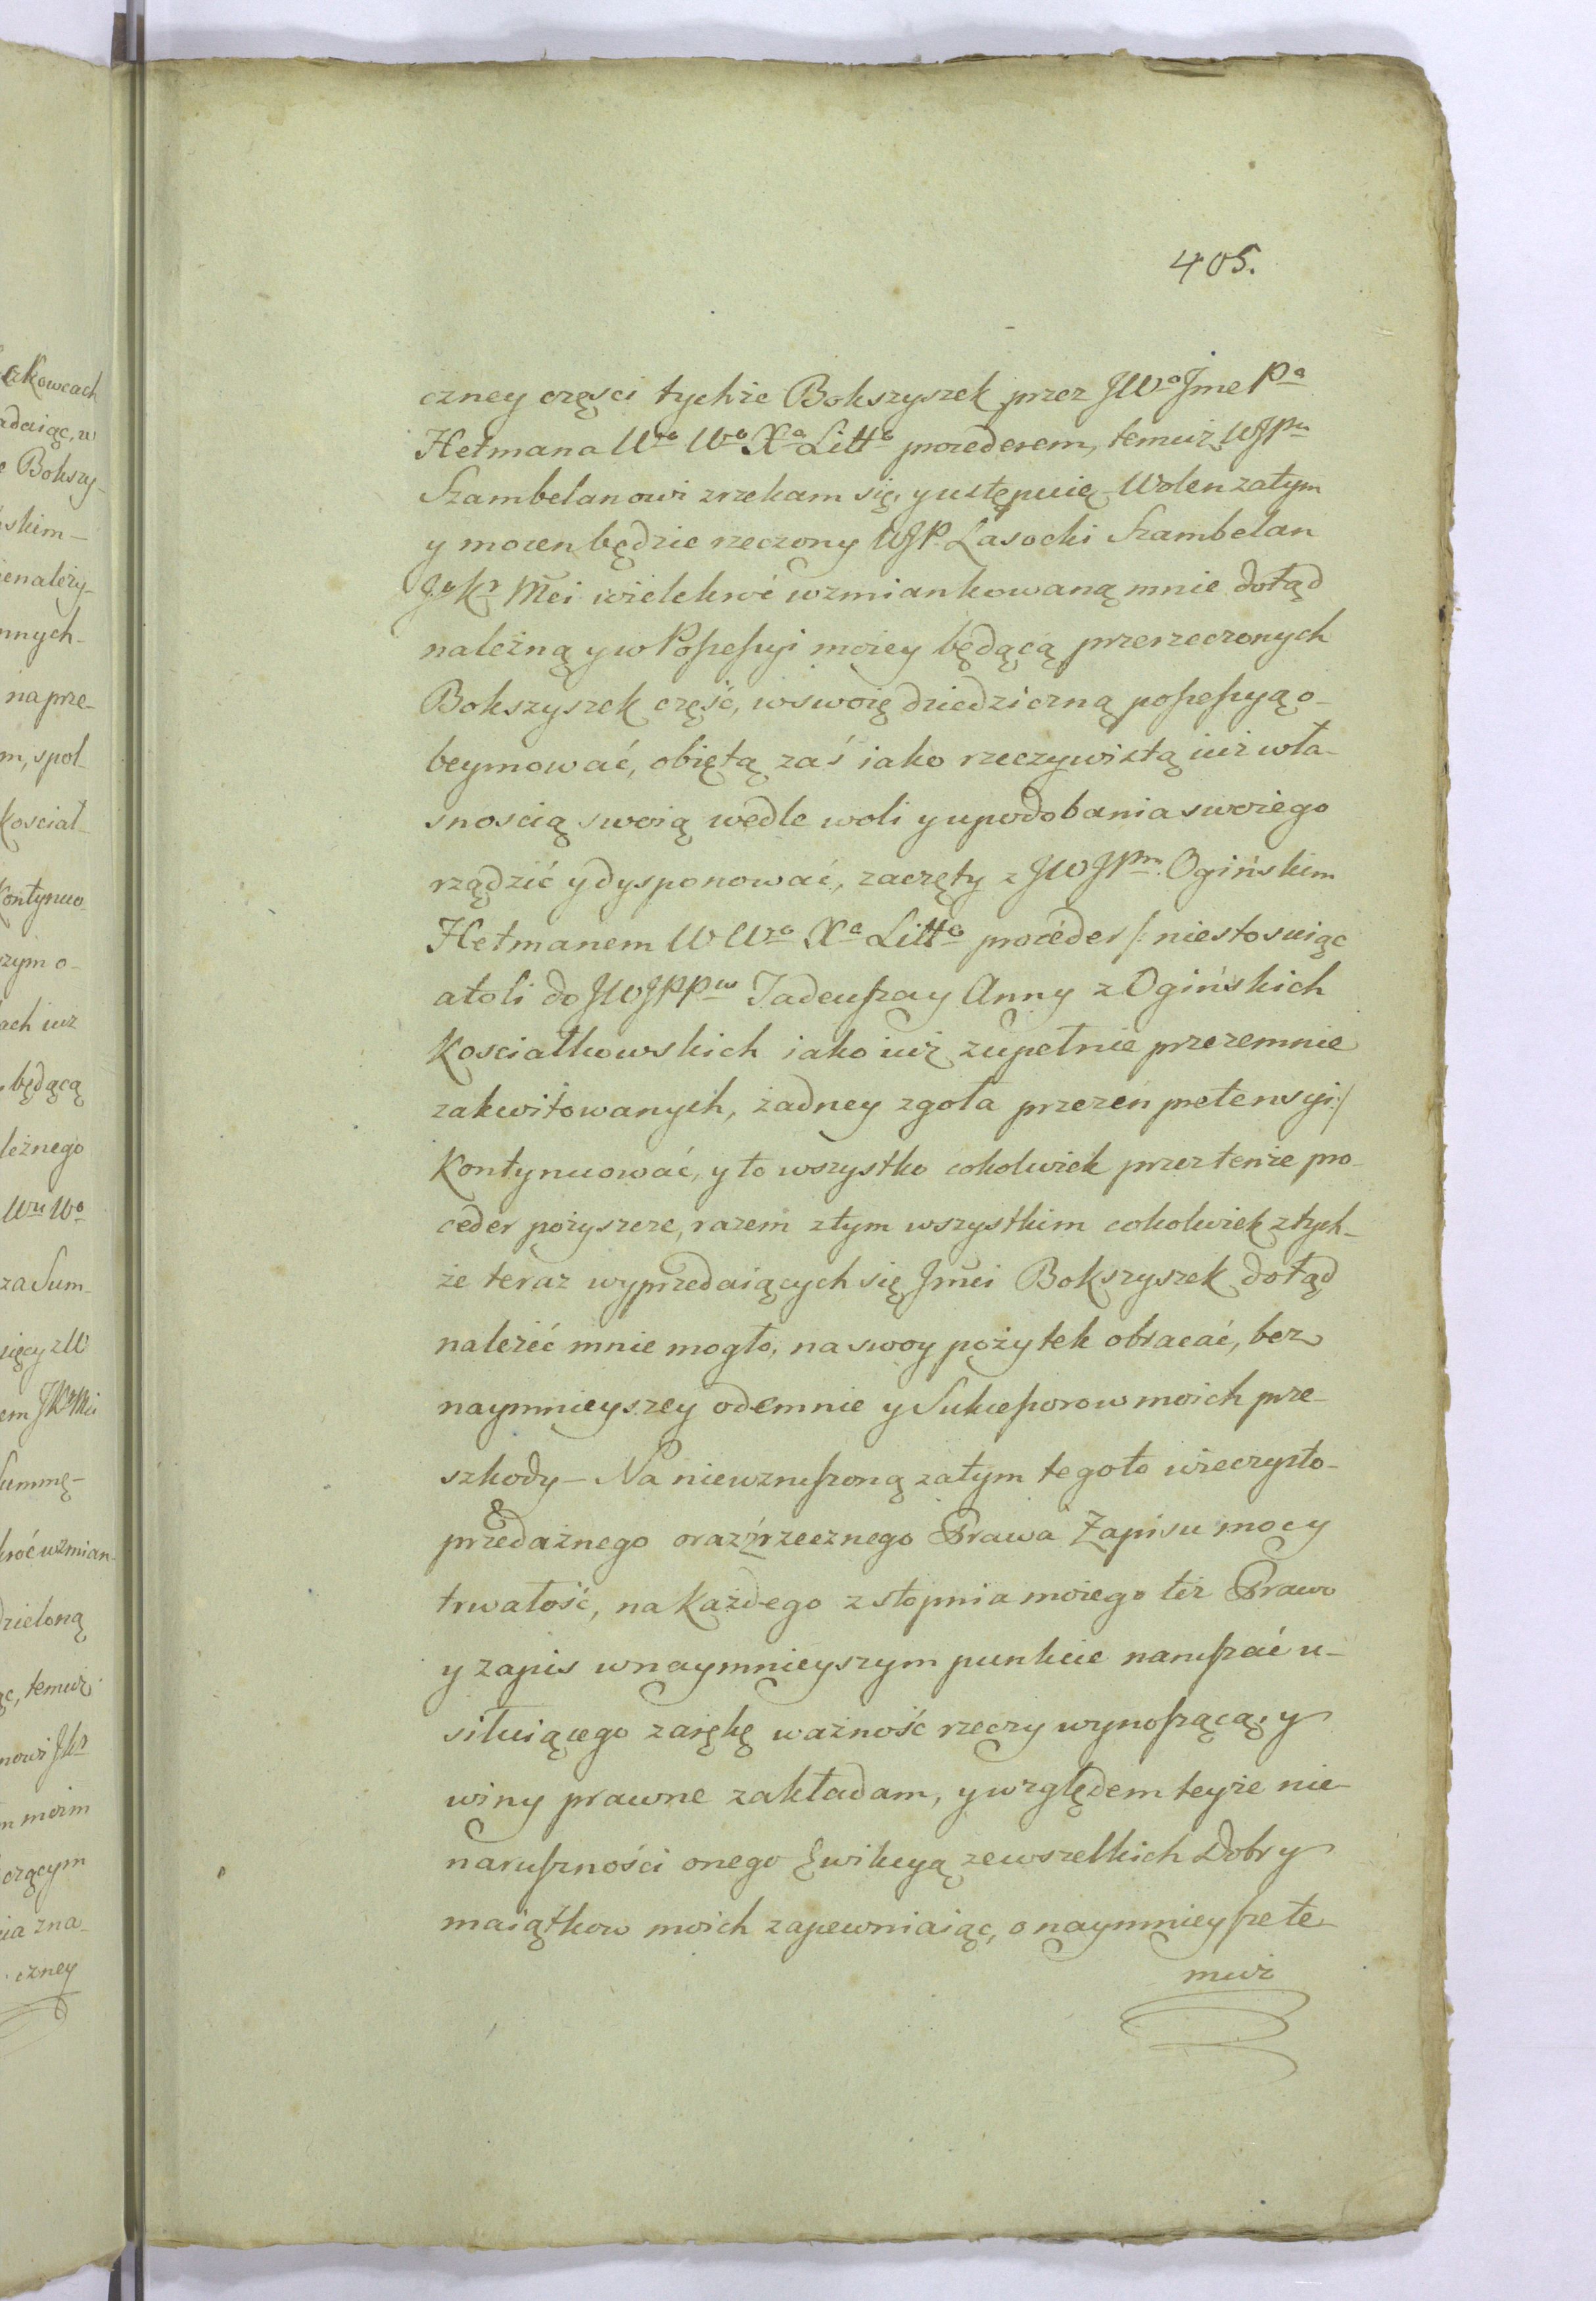 405.
czney częsci tychże Bokszyszek przez JWo Jme Pa
Hetmana Wo Wo Xa Litto procederem, temuż WJPu
Szambelanowi zrzekam się, y ustępuię – Wolen zatym
y mocen będzie rzeczony WJP. Lasocki Szambelan
JKr Mci wielekroć wzmiankowaną mnie dotąd
należną y w Possessyi moiey będącą przerzeczonych
Bokszyszek część, w swoię dziedziczną possessyą o-
beymować, obiętą zaś iako rzeczywistą iuż wła-
snoscią swoią wedle woli y upodobania swoiego
rządzić y dysponować, zaczęty z JWJPm. Ogińskim
Hetmanem W Wo Xa Litto proceder /: niestosuiąc
atoli do JWJPPw Tadeusza y Anny z Ogińskich
Kosciałkowskich iako iuż zupełnie przezemnie
zakwitowanych, żadney zgoła przezeń pretensyi :/
Kontynuować, y to wszystko cokolwiek przez tenże pro-
ceder pożyszcze, razem z tym wszystkim cokolwiek z tych-
że teraz wyprzedaiących się Jmci Bokszyszek dotąd
należeć mnie mogło, na swoy pożytek obracać, bez
naymnieyszey odemnie y Sukcessorow moich prze-
szkody – Na niewzruszoną zatym tegoto wieczysto-
przedażnego oraz zrzecznego Prawa Zapisu mocy
trwałość, na każdego z stopnia moiego też Prawo
y zapis w naymnieyszym punkcie naruszać u-
siłuiącego zarękę ważność rzeczy wynoszącą, y
winy prawne zakładam, y względem teyże nie-
naruszności onego Ewikcyą ze wszelkich Dobr y
maiątkow moich zapewniaiąc, o naymnieysze te-
muż
erkowcach
adaiąc, w
e Bokszy-
skim –
enależy-
nnych –
na prze-
m, spol-
Kosciał-
Kontynuo-
czym o-
ach iuż
będącą
leżnego
Wu Wo
za Sum-
ięcy z W
em JKr Mci
Summę –
kroć wzmian-
dzieloną
ąc, temuż
nowi JKr
m moim
orącym
ia zna-
czney